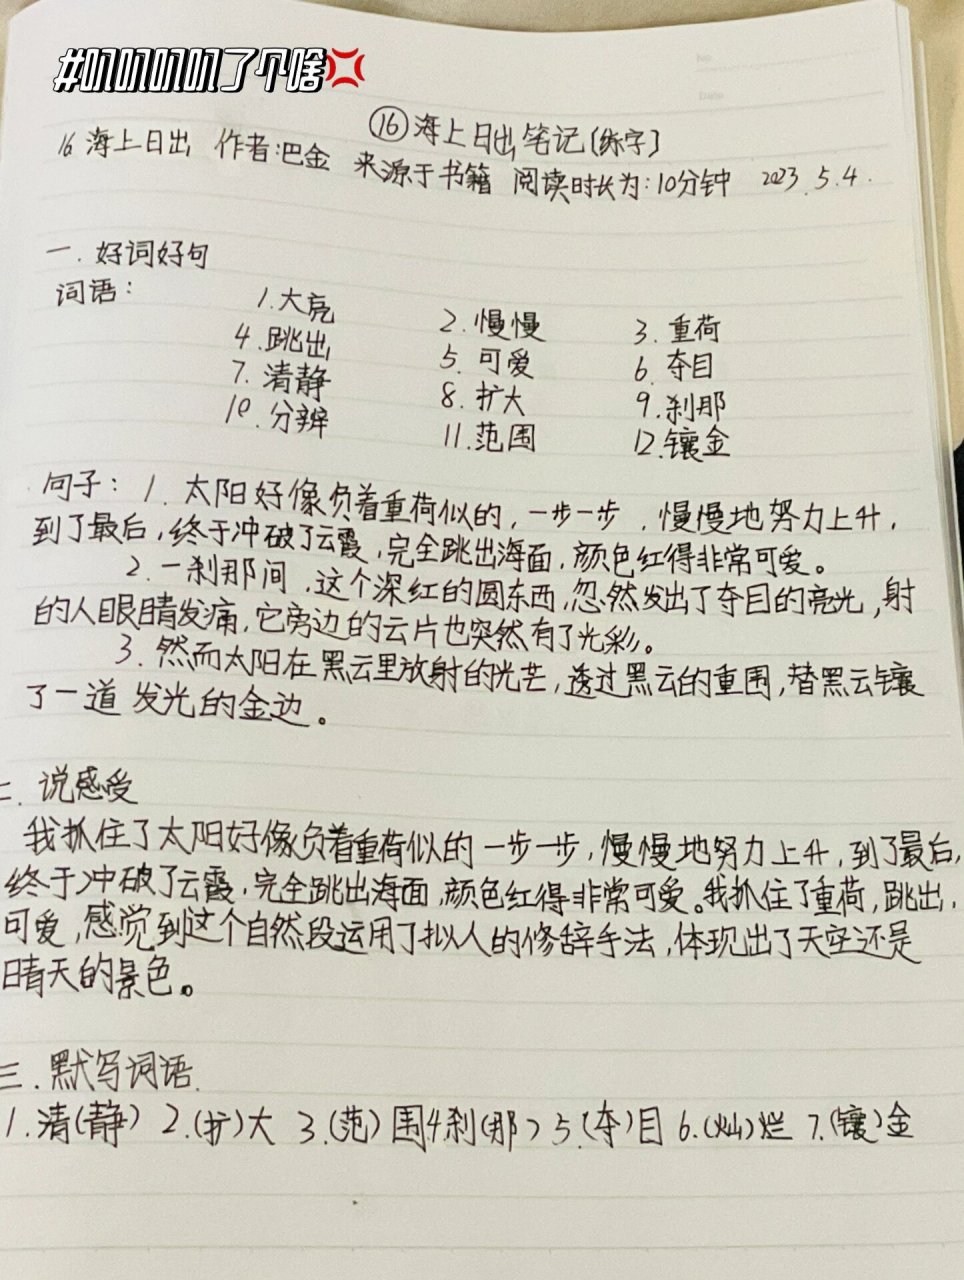 #叭叭叭叭了个啥
⑯海上日出笔记(练字)
16 海上日出 作者:巴金 来源于书籍 阅读时长为:10分钟 2023.5.4.
No
Date
一.好词好句
词语:
1.大亮 2.慢慢 3.重荷
4.跳出 5.可爱 6.夺目
7.清静 8.扩大 9.刹那
10.分辨 11.范围 12.镶金
句子:1.太阳好像负着重荷似的,一步一步,慢慢地努力上升,
到了最后,终于冲破了云霞,完全跳出海面,颜色红得非常可爱。
2.一刹那间,这个深红的圆东西,忽然发出了夺目的亮光,射
的人眼睛发痛,它旁边的云片也突然有了光彩。
3.然而太阳在黑云里放射的光芒,透过黑云的重围,替黑云镶
了一道发光的金边。
二.说感受
我抓住了太阳好像负着重荷似的一步一步,慢慢地努力上升,到了最后,
终于冲破了云霞,完全跳出海面,颜色红得非常可爱。我抓住了重荷,跳出,
可爱,感觉到这个自然段运用了拟人的修辞手法,体现出了天空还是
晴天的景色。
三.默写词语.
1.清(静) 2.(扩)大 3.(范)围 4.刹(那) 5.(夺)目 6.(灿)烂 7.(镶)金